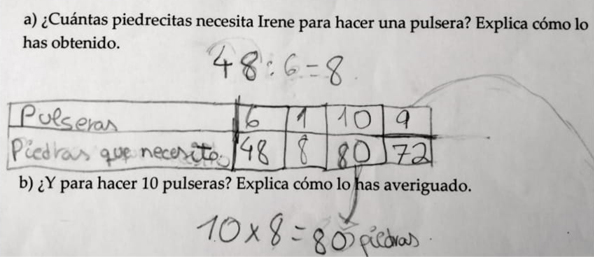 a) ¿Cuántas piedrecitas necesita Irene para hacer una pulsera? Explica cómo lo
has obtenido.
48:6=8
Pulseras 6 1 10 9
Piedras que necesito 48 8 80 72
b) ¿Y para hacer 10 pulseras? Explica cómo lo has averiguado.
10x8=80 piedras.